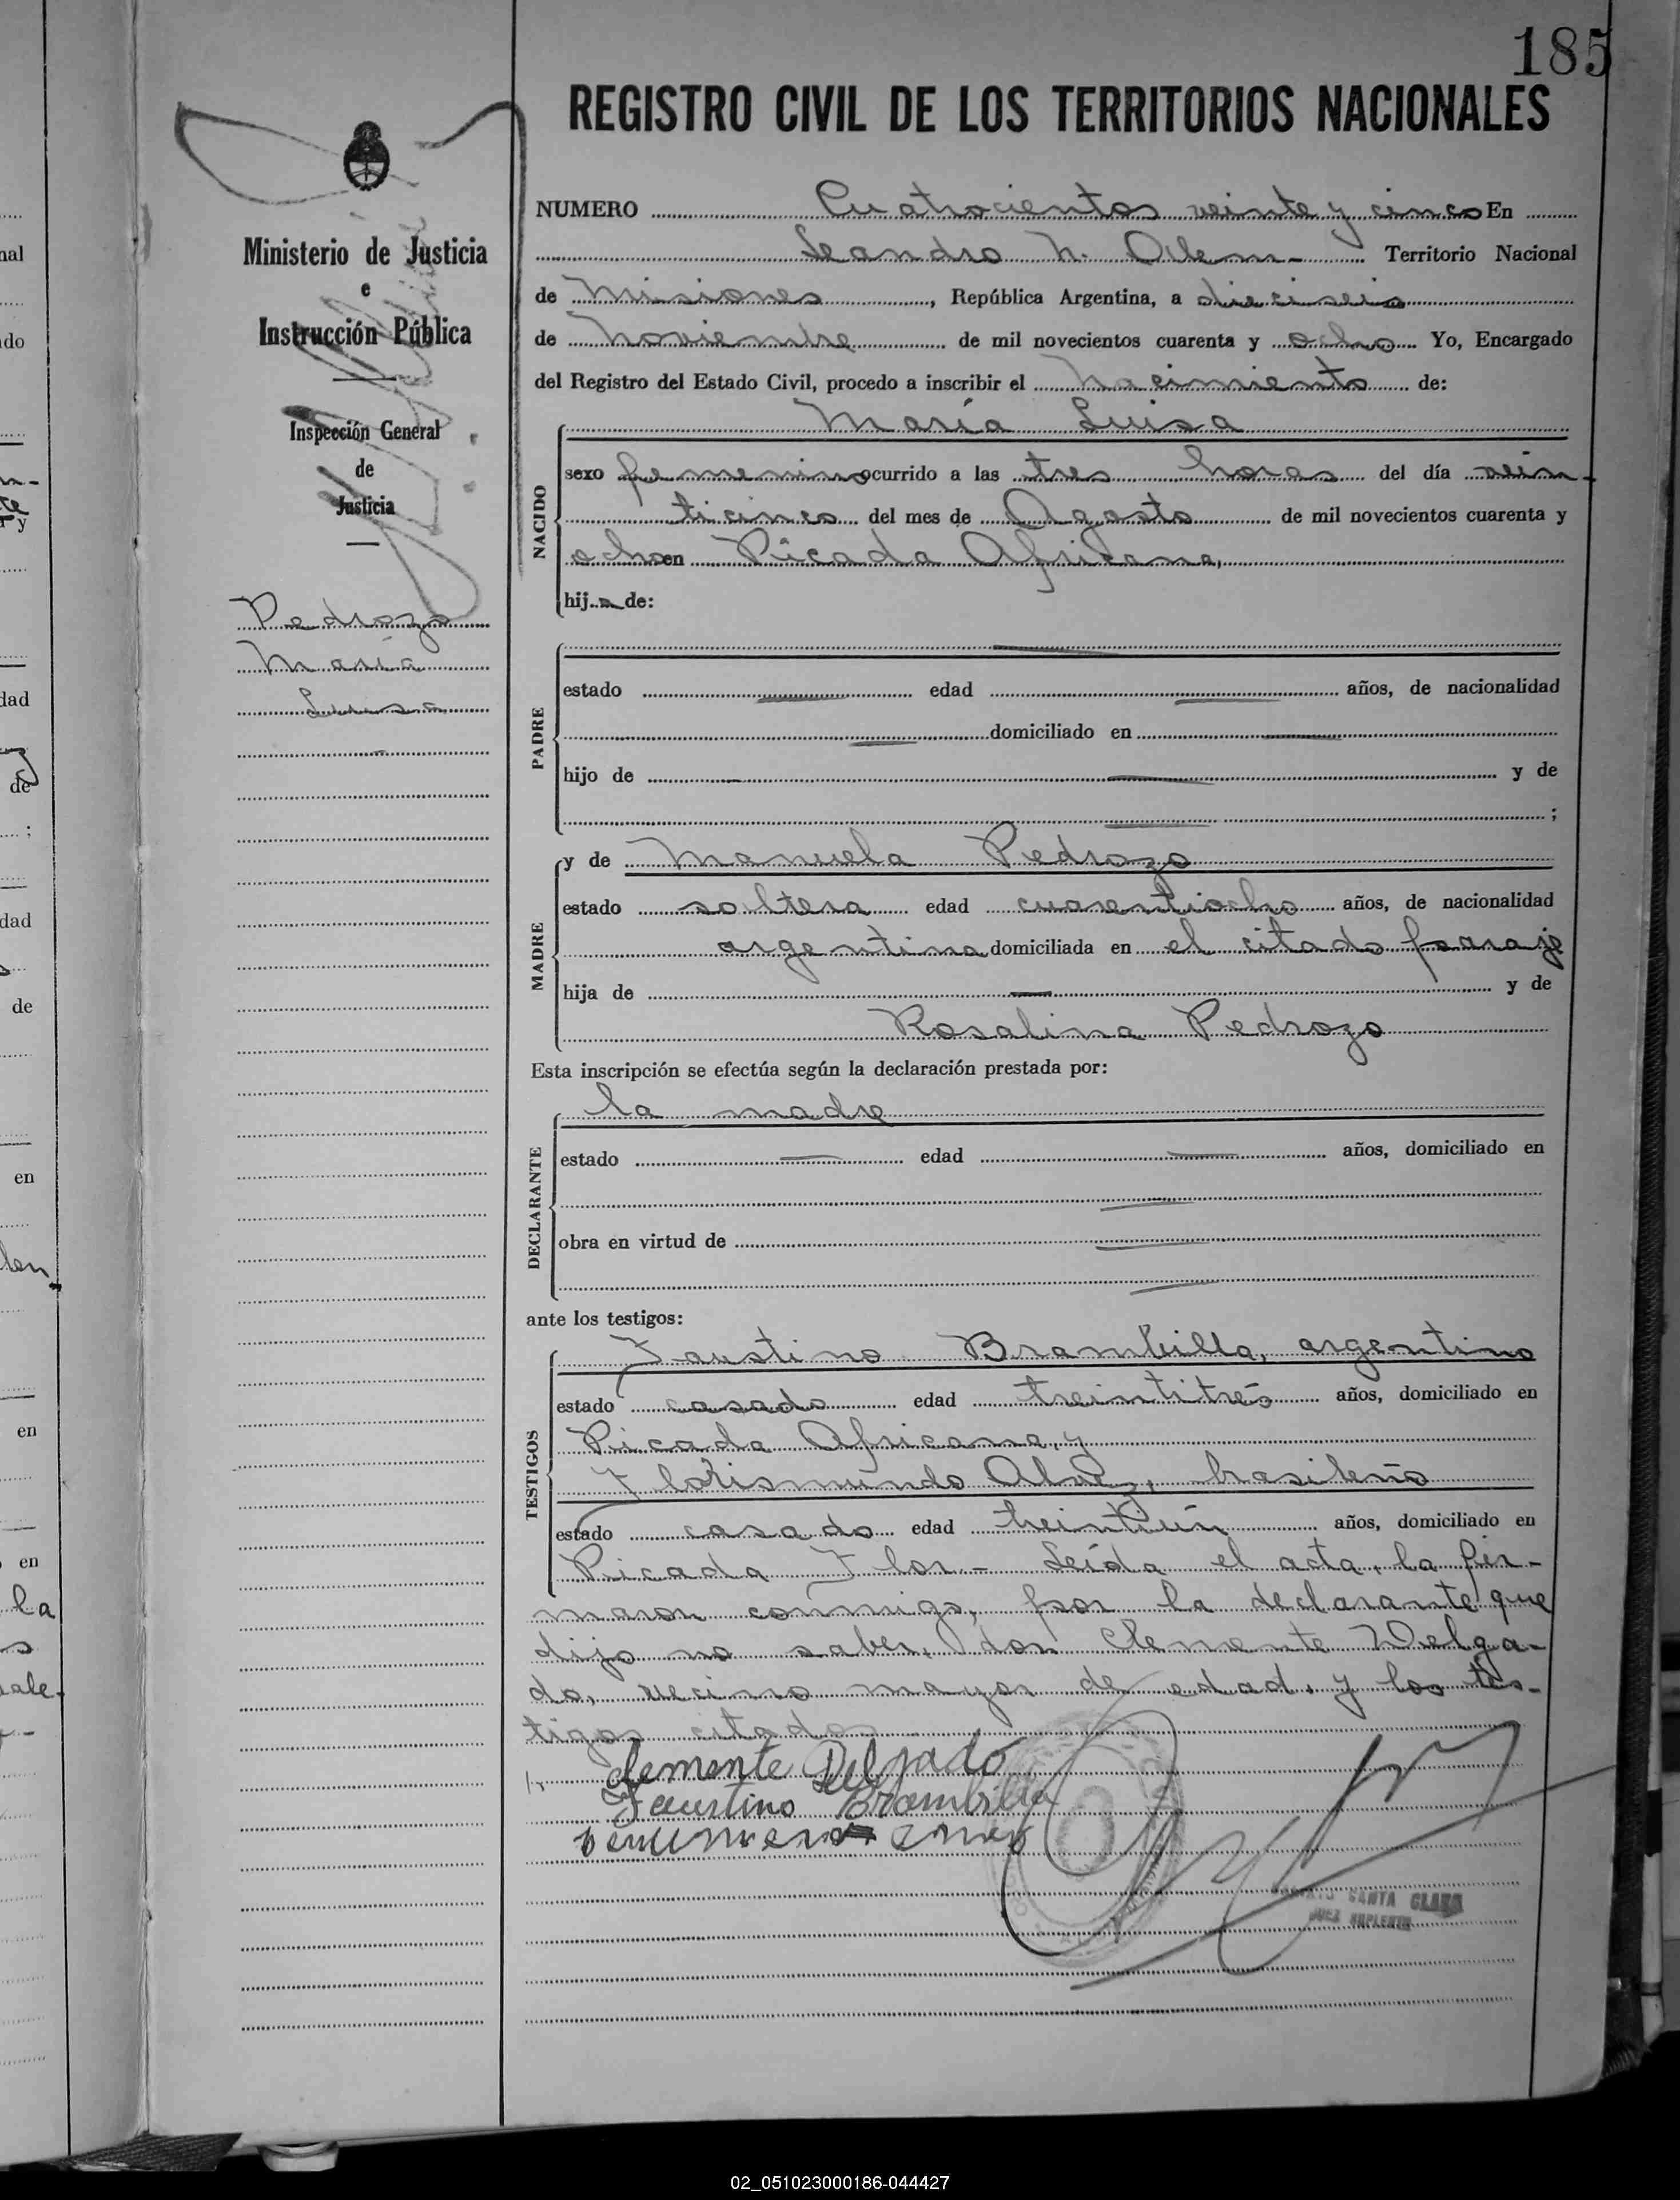 185
REGISTRO CIVIL DE LOS TERRITORIOS NACIONALES
Ministerio de Justicia
e
Instrucción Pública
Inspección General
de
Justicia
Pedrozo
María
Luisa
NUMERO Cuatrocientos veinte y cinco En
Leandro N. Alem - Territorio Nacional
de Misiones, República Argentina, a dieciseis
de Noviembre de mil novecientos cuarenta y ocho Yo, Encargado
del Registro del Estado Civil, procedo a inscribir el nacimiento de:
NACIDO
María Luisa
sexo femenino ocurrido a las tres horas del día vein-
ticinco del mes de Agosto de mil novecientos cuarenta y
ocho en Picada Africana,
hija de:
PADRE
estado edad años, de nacionalidad
domiciliado en
hijo de y de
;
MADRE
y de Manuela Pedrozo
estado soltera edad cuarentiocho años, de nacionalidad
argentina domiciliada en el citado paraje
hija de — y de
Rosalina Pedrozo
Esta inscripción se efectúa según la declaración prestada por:
DECLARANTE
la madre
estado edad años, domiciliado en
obra en virtud de
ante los testigos:
TESTIGOS
Faustino Brambilla, argentino
estado casado edad treintitrés años, domiciliado en
Picada Africana, y
Florismundo brasileño
estado casado edad treintiún años, domiciliado en
Picada Flor.- Leída el acta, la fir-
maron conmigo, por la declarante que
dijo no saber, don Clemente Delga-
do, vecino mayor de edad, y los tes-
tigos citados
Clemente Delgado
Faustino Brambilla
SANTA CLARA
JUEZ SUPLENTE
02_051023000186-044427